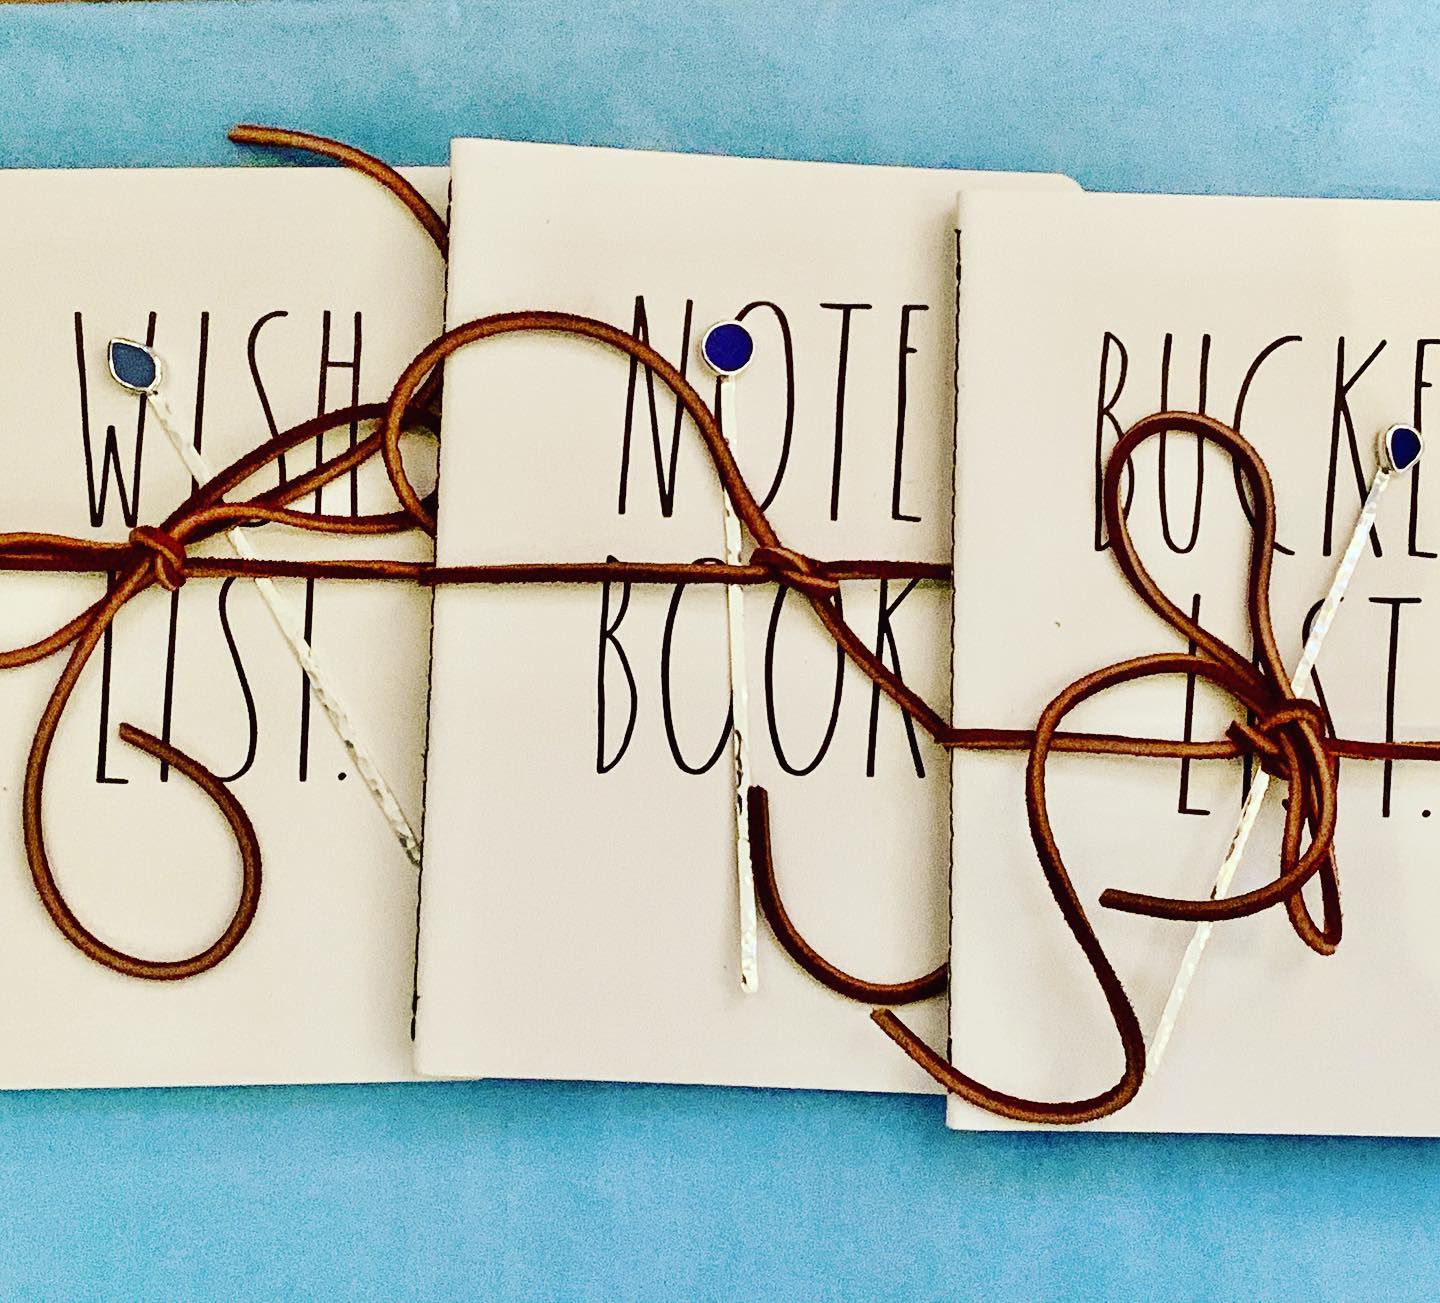 WISH
LIST.
NOTE
BOOK
BUCKE
LIST.